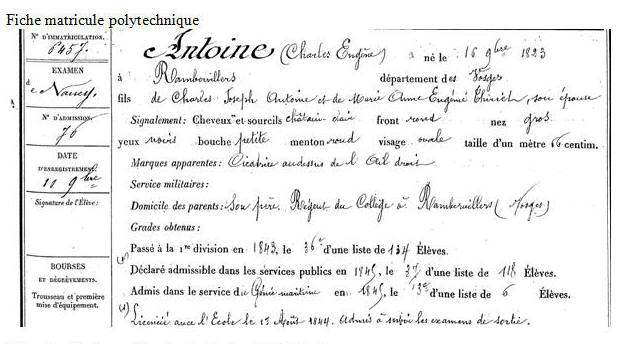 Fiche matricule polytechnique
N° D'IMMATRICULATION.
6457.
EXAMEN
de Nancy.
N° D'ADMISSION.
76
DATE
D'ENREGISTREMENT.
10 9bre
Signature de l'Élève :
BOURSES
ET DÉGRÈVEMENTS.
Trousseau et première
mise d'équipement.
Antoine (Charles Eugène) né le 16 9bre 1823
à Rambervillers département des Vosges
fils de Charles Joseph Antoine et de Marie Anne Eugénie Thirich, son épouse
Signalement: Cheveux et sourcils châtain clair front rond nez gros
yeux noirs bouche petite menton rond visage ovale taille d'un mètre 66 centim.
Marques apparentes: Cicatrice au dessus de l'Œil droit
Service militaire:
Domicile des parents: Son père, Régent du Collège à Rambervillers (Vosges)
Grades obtenus:
Passé à la 1re division en 1843, le 36e d'une liste de 134 Élèves.
(1) Déclaré admissible dans les services publics en 1845, le d'une liste de 118 Élèves.
Admis dans le service du Génie maritime en 1845, le d'une liste de 6 Élèves.
(1) Licencié avec l'Ecole le Août 1844. Admis à subir les examens de sortie.